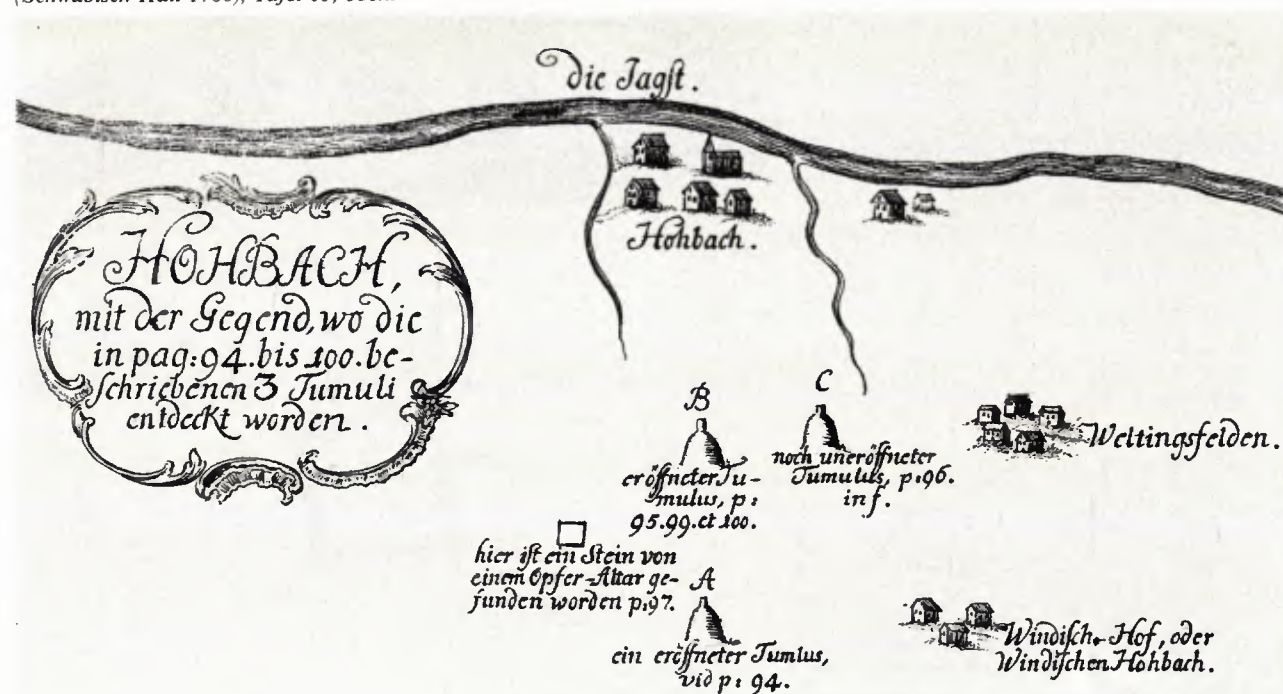 die Jagſt.
Hohbach.
HOHBACH,
mit der Gegend, wo die
in pag: 94. bis 100. be-
ſchriebenen 3 Tumuli
entdeckt worden.
B
eröffneter Tu-
mulus, p:
95. 99. et 100.
C
noch uneröffneter
Tumulus, p: 96.
in f.
Weltingsfelden.
hier iſt ein Stein von
einem Opfer-Altar ge-
funden worden p: 97.
A
ein eröffneter Tumlus,
vid p: 94.
Windiſch-Hof, oder
Windiſchen Hohbach.